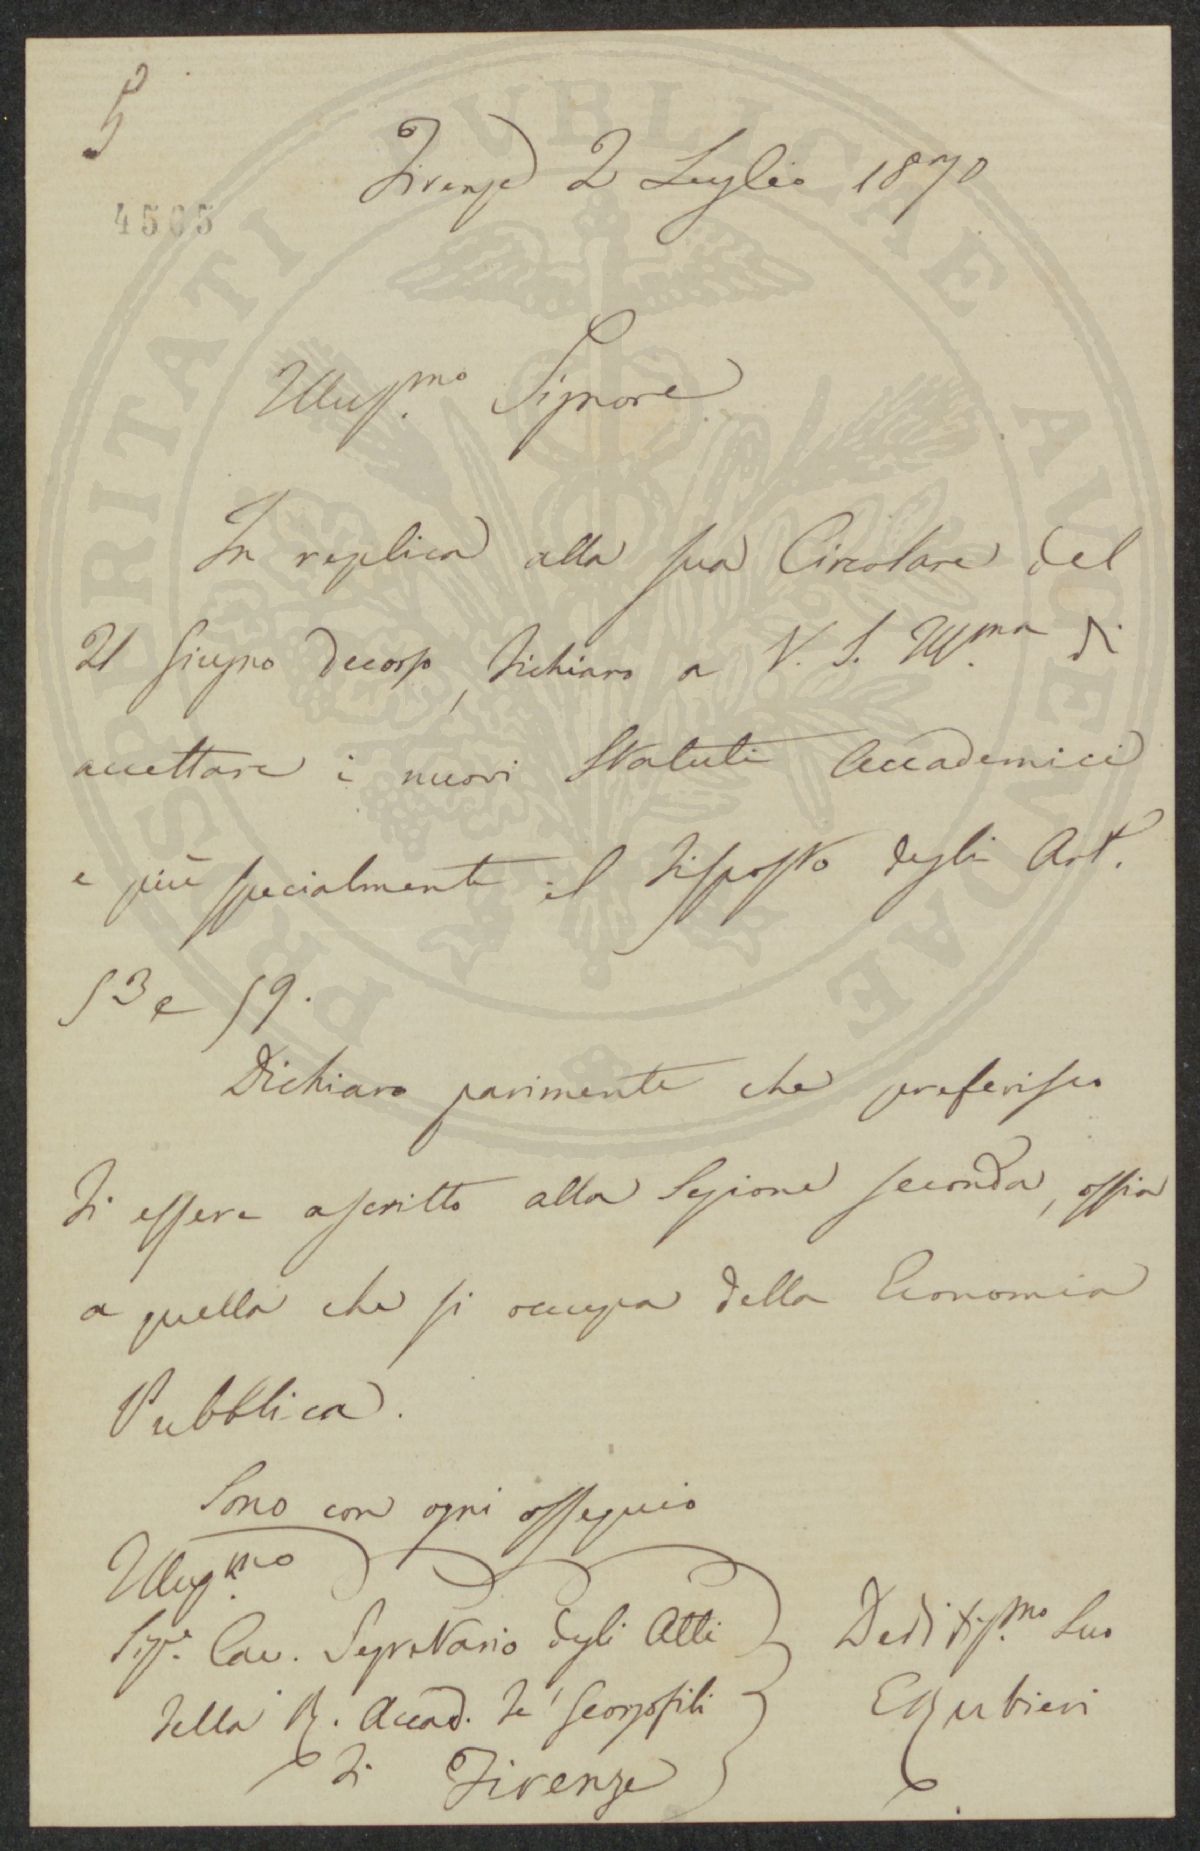 5
4505
Firenze 2 Luglio 1870
Illuss.mo Signore
In replica alla sua Circolare del
21 Giugno decorso, dichiaro a V. S. Ill.ma di
accettare i nuovi Statuti Accademici
e più specialmente il disposto degli Art.
53 e 59.
Dichiaro parimente che preferisco
di essere ascritto alla Sezione seconda, ossia
a quella che si occupa della Economia
Pubblica.
Sono con ogni ossequio
Illus.mo
Sig.r Cav. Segretario degli Atti
della R. Accad. de' Georgofili
di Firenze
Deditiss.mo Suo
E Rubieri
PROSPERITATI PUBLICAE AUGENDAE